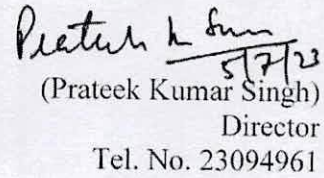 Prateek K Sin
5/7/23
(Prateek Kumar Singh)
Director
Tel. No. 23094961